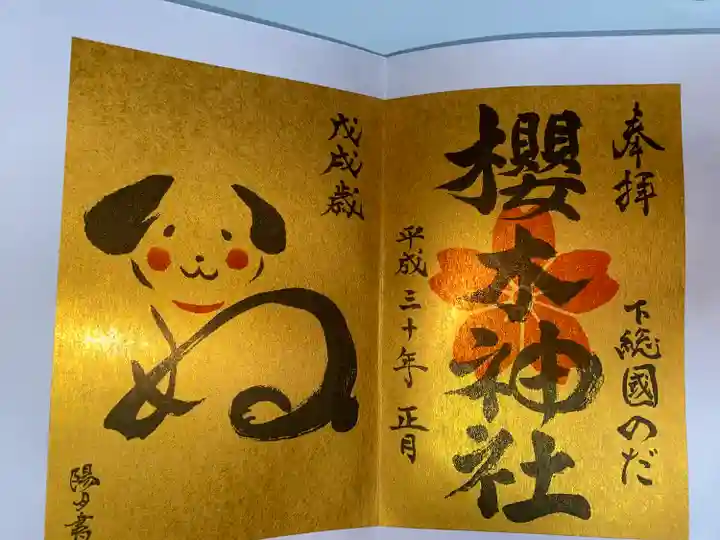 奉拝
下総國のだ
櫻木神社
平成三十年 正月
戊戌歳
ぬ
陽夕書